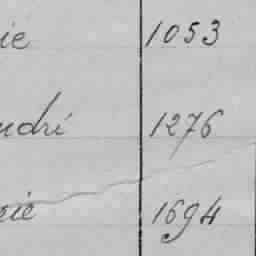 ie 1053
udré 1276
rie 1694